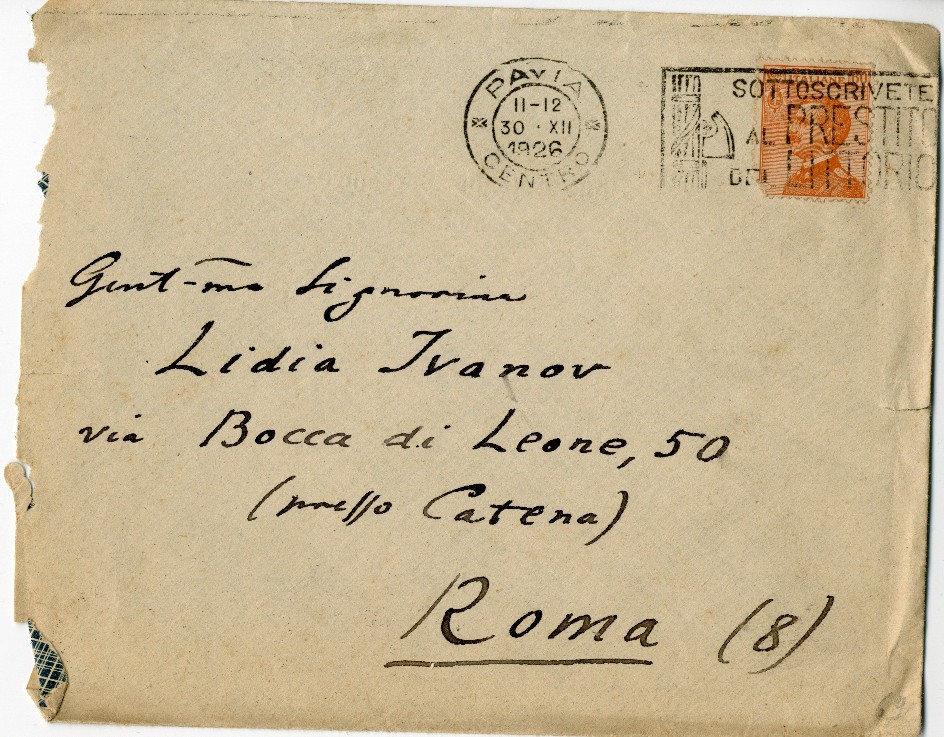 PAVIA
11-12
30 · XII
1926
CENTRO
SOTTOSCRIVETE
AL PRESTITO
DEL LITTORIO
Gent-ma Signorina
Lidia Ivanov
via Bocca di Leone, 50
(presso Catena)
Roma (8)